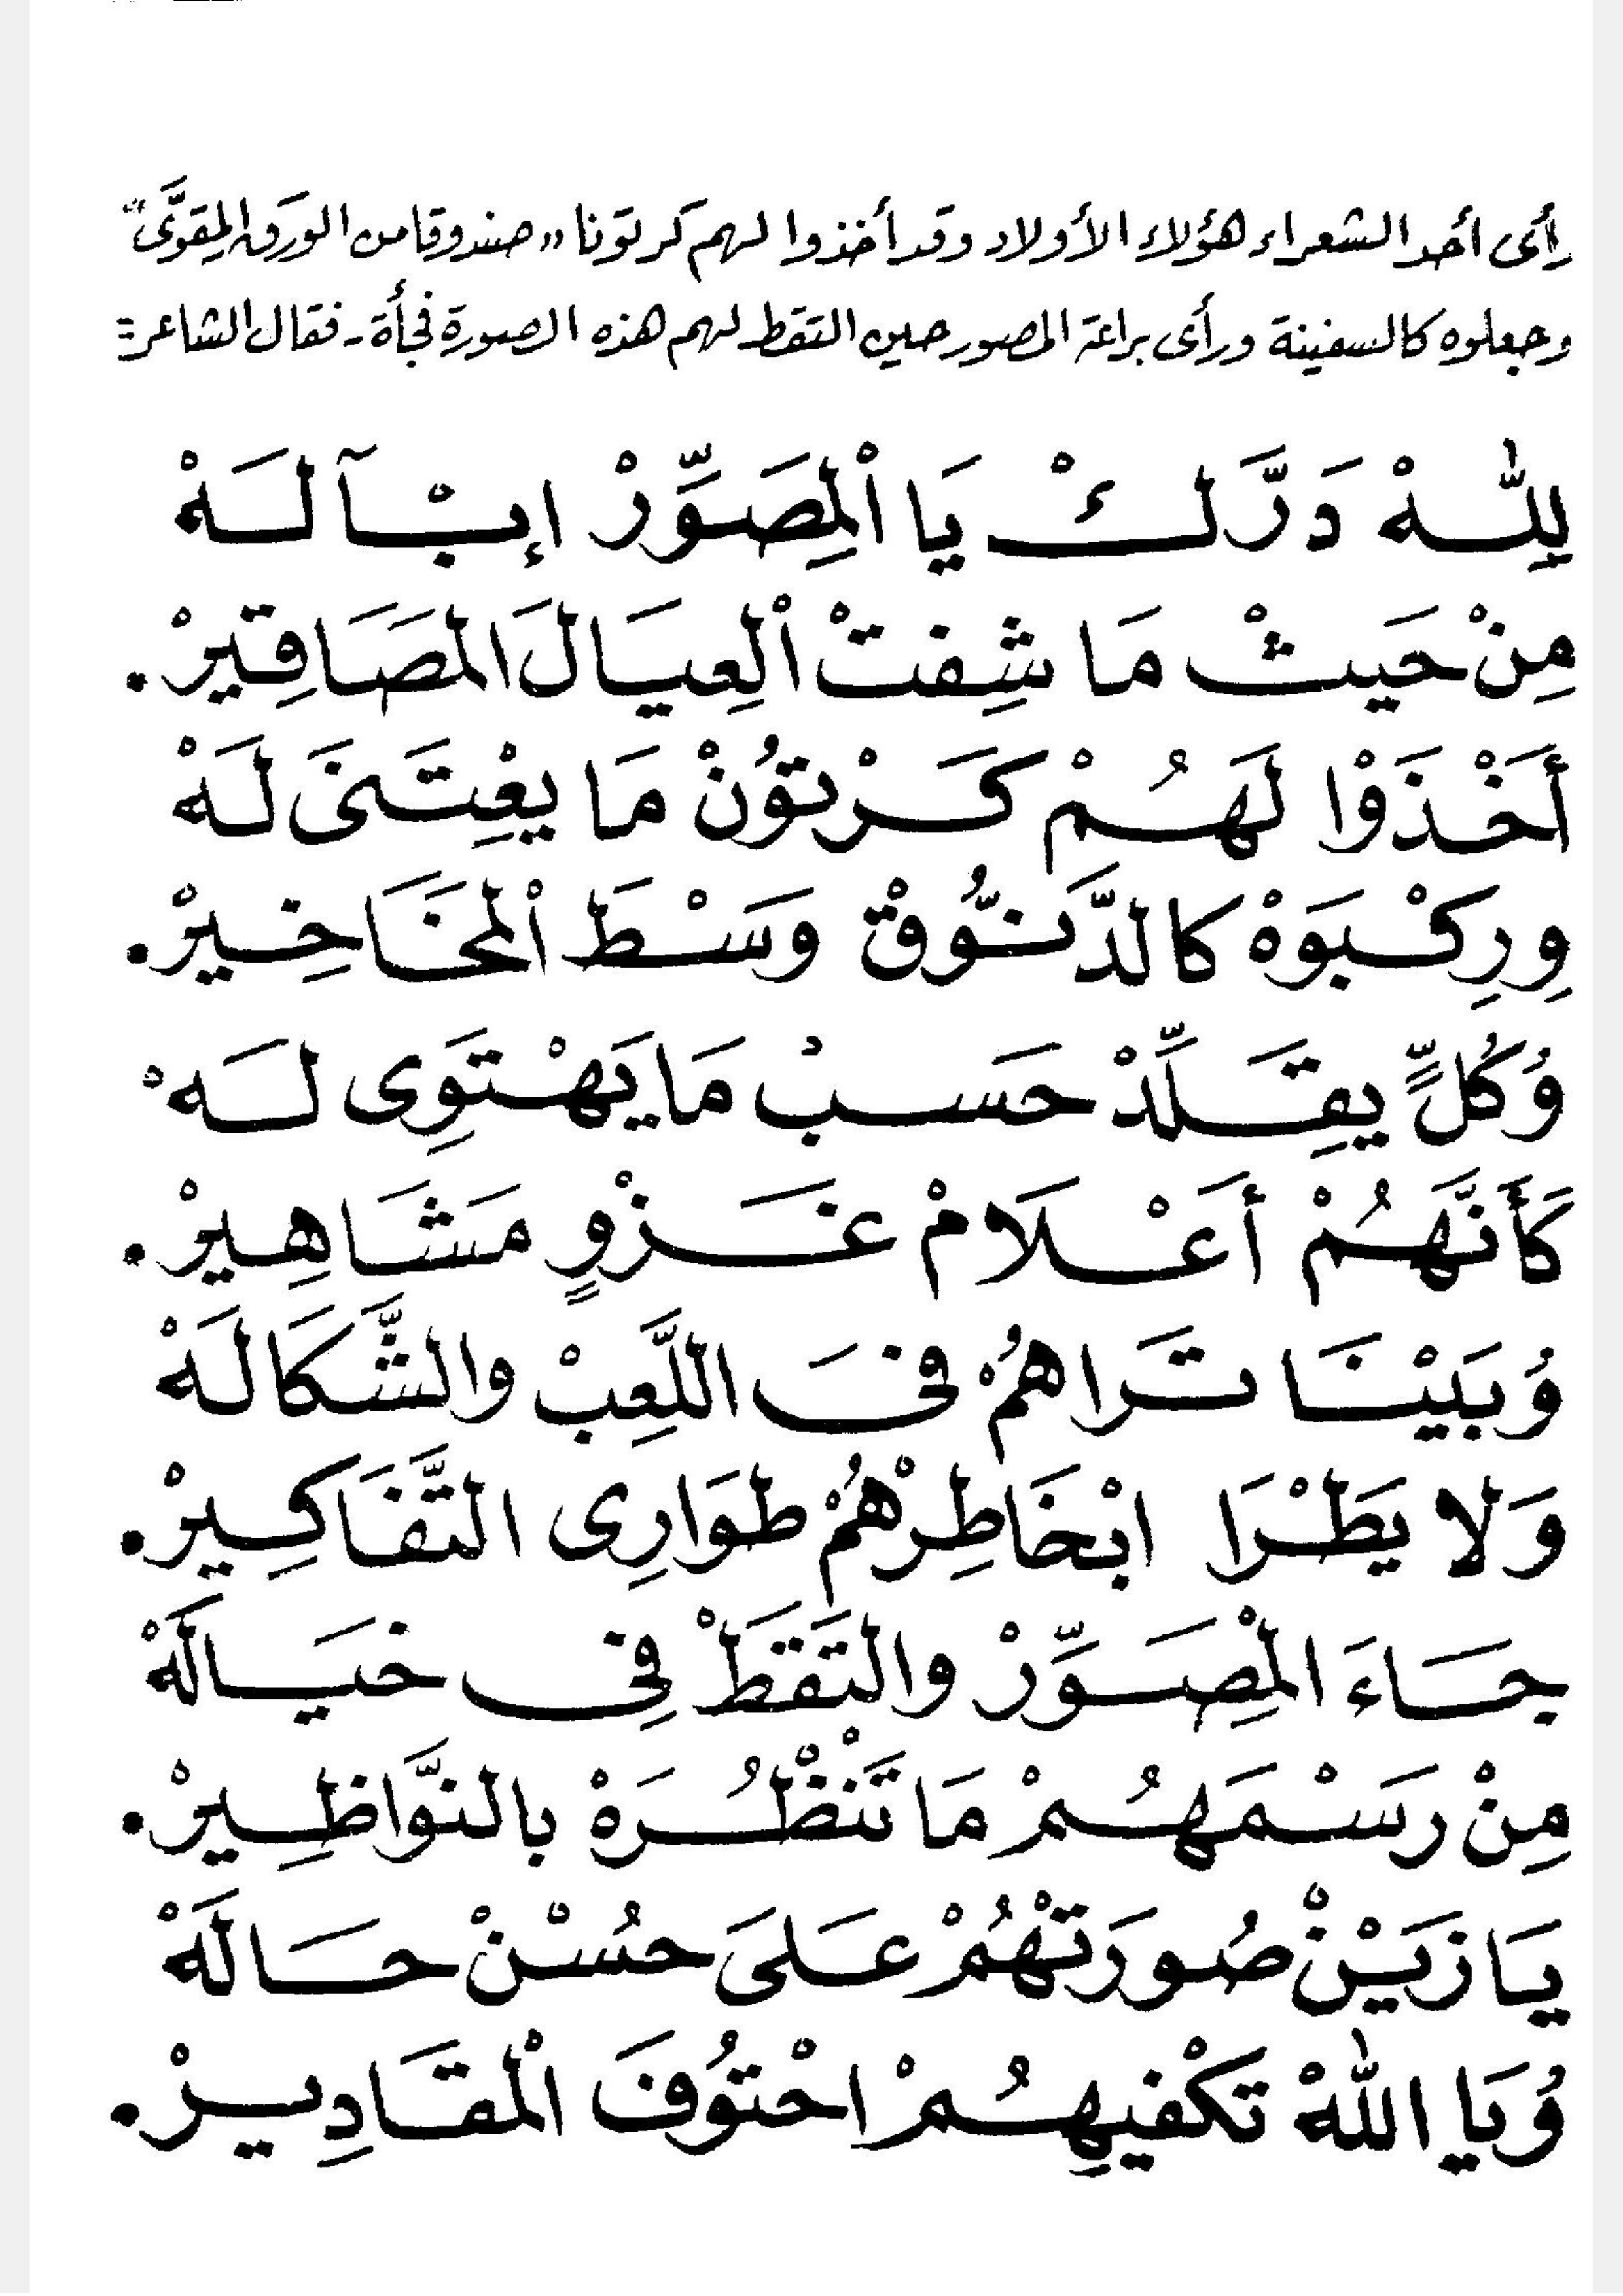 رأى أحد الشعراء هؤلاء الأولاد وقد أخذوا لهم كرتونا «صندوقا من الورق المقوَّى»
وجعلوه كالسفينة ورأى براعة المصور حين التقط لهم هذه الصورة فجأة - فقال الشاعر :=
لِلّٰهْ دَرَّلكْ يَا الْمِصَوِّرْ إبْآلَهْ
مِنْ حَيثْ مَا شِفتْ الْعِيَالَ المَصَاقِيرْ.
أَخْذَوْا لَهُمْ كَرْتوُنْ مَا يعْتِنَى لَهْ
وِرِكْبَوَهْ كالدَّنُّوقْ وَسْطَ الْمخَاخِيرْ.
وُكُلٍّ يقِلِّدْ حَسبْ مَا يَهْتَوِى لَهْ
كَأَنَّهُمْ أَعْلَامْ غَزْوٍ مَشَاهِيرْ.
وُبَيْنَا تَرَاهُمْ فىَ اللَّعِبْ والشَّكَالَهْ
وَلا يَطْرَا ابْخَاطِرْهُمْ طوَارِى التَّفَاكِيرْ.
جَاءَ المْصَوِّرْ والتَقَطْ فِى خيَالَهْ
مِنْ رَسْمَهُمْ مَا تَنْظُرَهْ بالنوَّاظِيرْ.
يَا زَيْنْ صُورَتْهُمْ عَلَى حُسْنْ حَالَهْ
وُيَا اللهْ تكْفيهِمْ احْتوُفَ الْمقَادِيرْ.